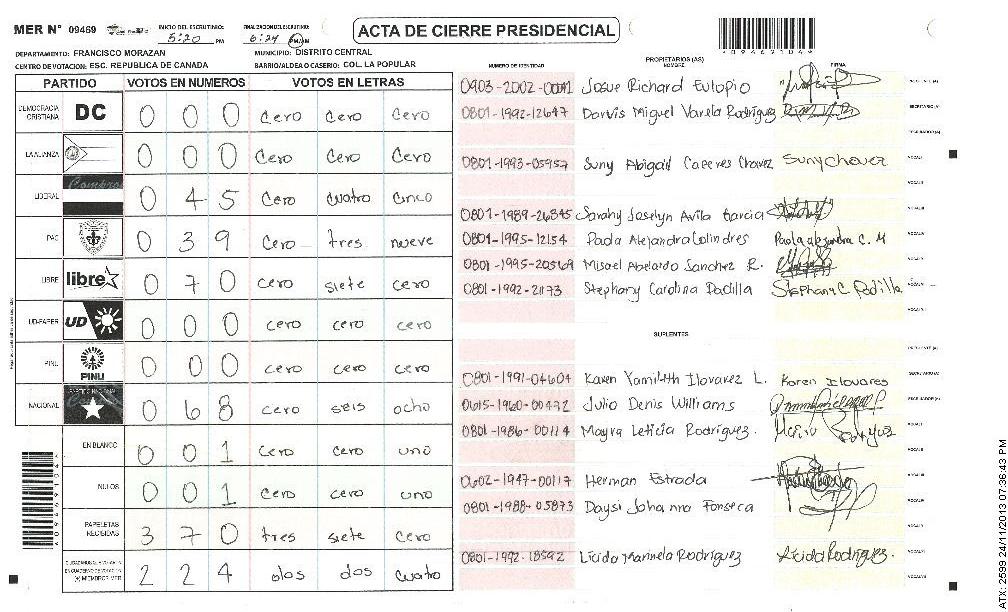 MER Nº 09469
INICIO DEL ESCRUTINIO: 5:20 PM
FINALIZACION DEL ESCRUTINIO: 6:24 PM
ACTA DE CIERRE PRESIDENCIAL
DEPARTAMENTO: FRANCISCO MORAZAN
MUNICIPIO: DISTRITO CENTRAL
CENTRO DE VOTACION: ESC. REPUBLICA DE CANADA
BARRIO/ALDEA O CASERIO: COL. LA POPULAR
PARTIDO VOTOS EN NUMEROS VOTOS EN LETRAS
DEMOCRACIA CRISTIANA DC 0 0 0 Cero Cero Cero
LA ALIANZA 0 0 0 Cero Cero Cero
LIBERAL 0 4 5 Cero cuatro cinco
PAC 0 3 9 Cero tres nueve
LIBRE libre 0 7 0 cero siete cero
UD-FAPER UD 0 0 0 cero cero cero
PINU PINU 0 0 0 cero cero cero
NACIONAL 0 6 8 cero seis ocho
EN BLANCO 0 0 1 Cero cero uno
NULOS 0 0 1 Cero cero uno
PAPELETAS RECIBIDAS 3 7 0 tres siete cero
2 2 4 dos dos cuatro
NUMERO DE IDENTIDAD
PROPIETARIOS (AS)
NOMBRE
FIRMA
0903-2002-00041 Josue Richard Eulopio
0801-1992-12647 Darvis Miguel Varela Rodriguez
0801-1993-05957 Suny Abigail Caceres Chavez Suny chavez
0801-1989-26845 Sarahy Joselyn Avila Garcia
0801-1995-12154 Paola Alejandra Colindres Paola alejandra C. M
0801-1995-20569 Misael Abelardo Sanchez R.
0801-1992-21173 Stephany Carolina Padilla Stephany C Padilla
SUPLENTES
0801-1991-04604 Karen Yamilith Ilovarez L. Karen Ilovares
0615-1960-00492 Julio Denis Williams
0801-1986-00114 Mayra Leticia Rodriguez.
0602-1947-00117 Herman Estrada
0801-1988-05873 Daysi Johanna Fonseca
0801-1992-18592 Licida Marinela Rodriguez Licida Rodriguez.
ATX: 2599 24/11/2013 07:36:43 PM